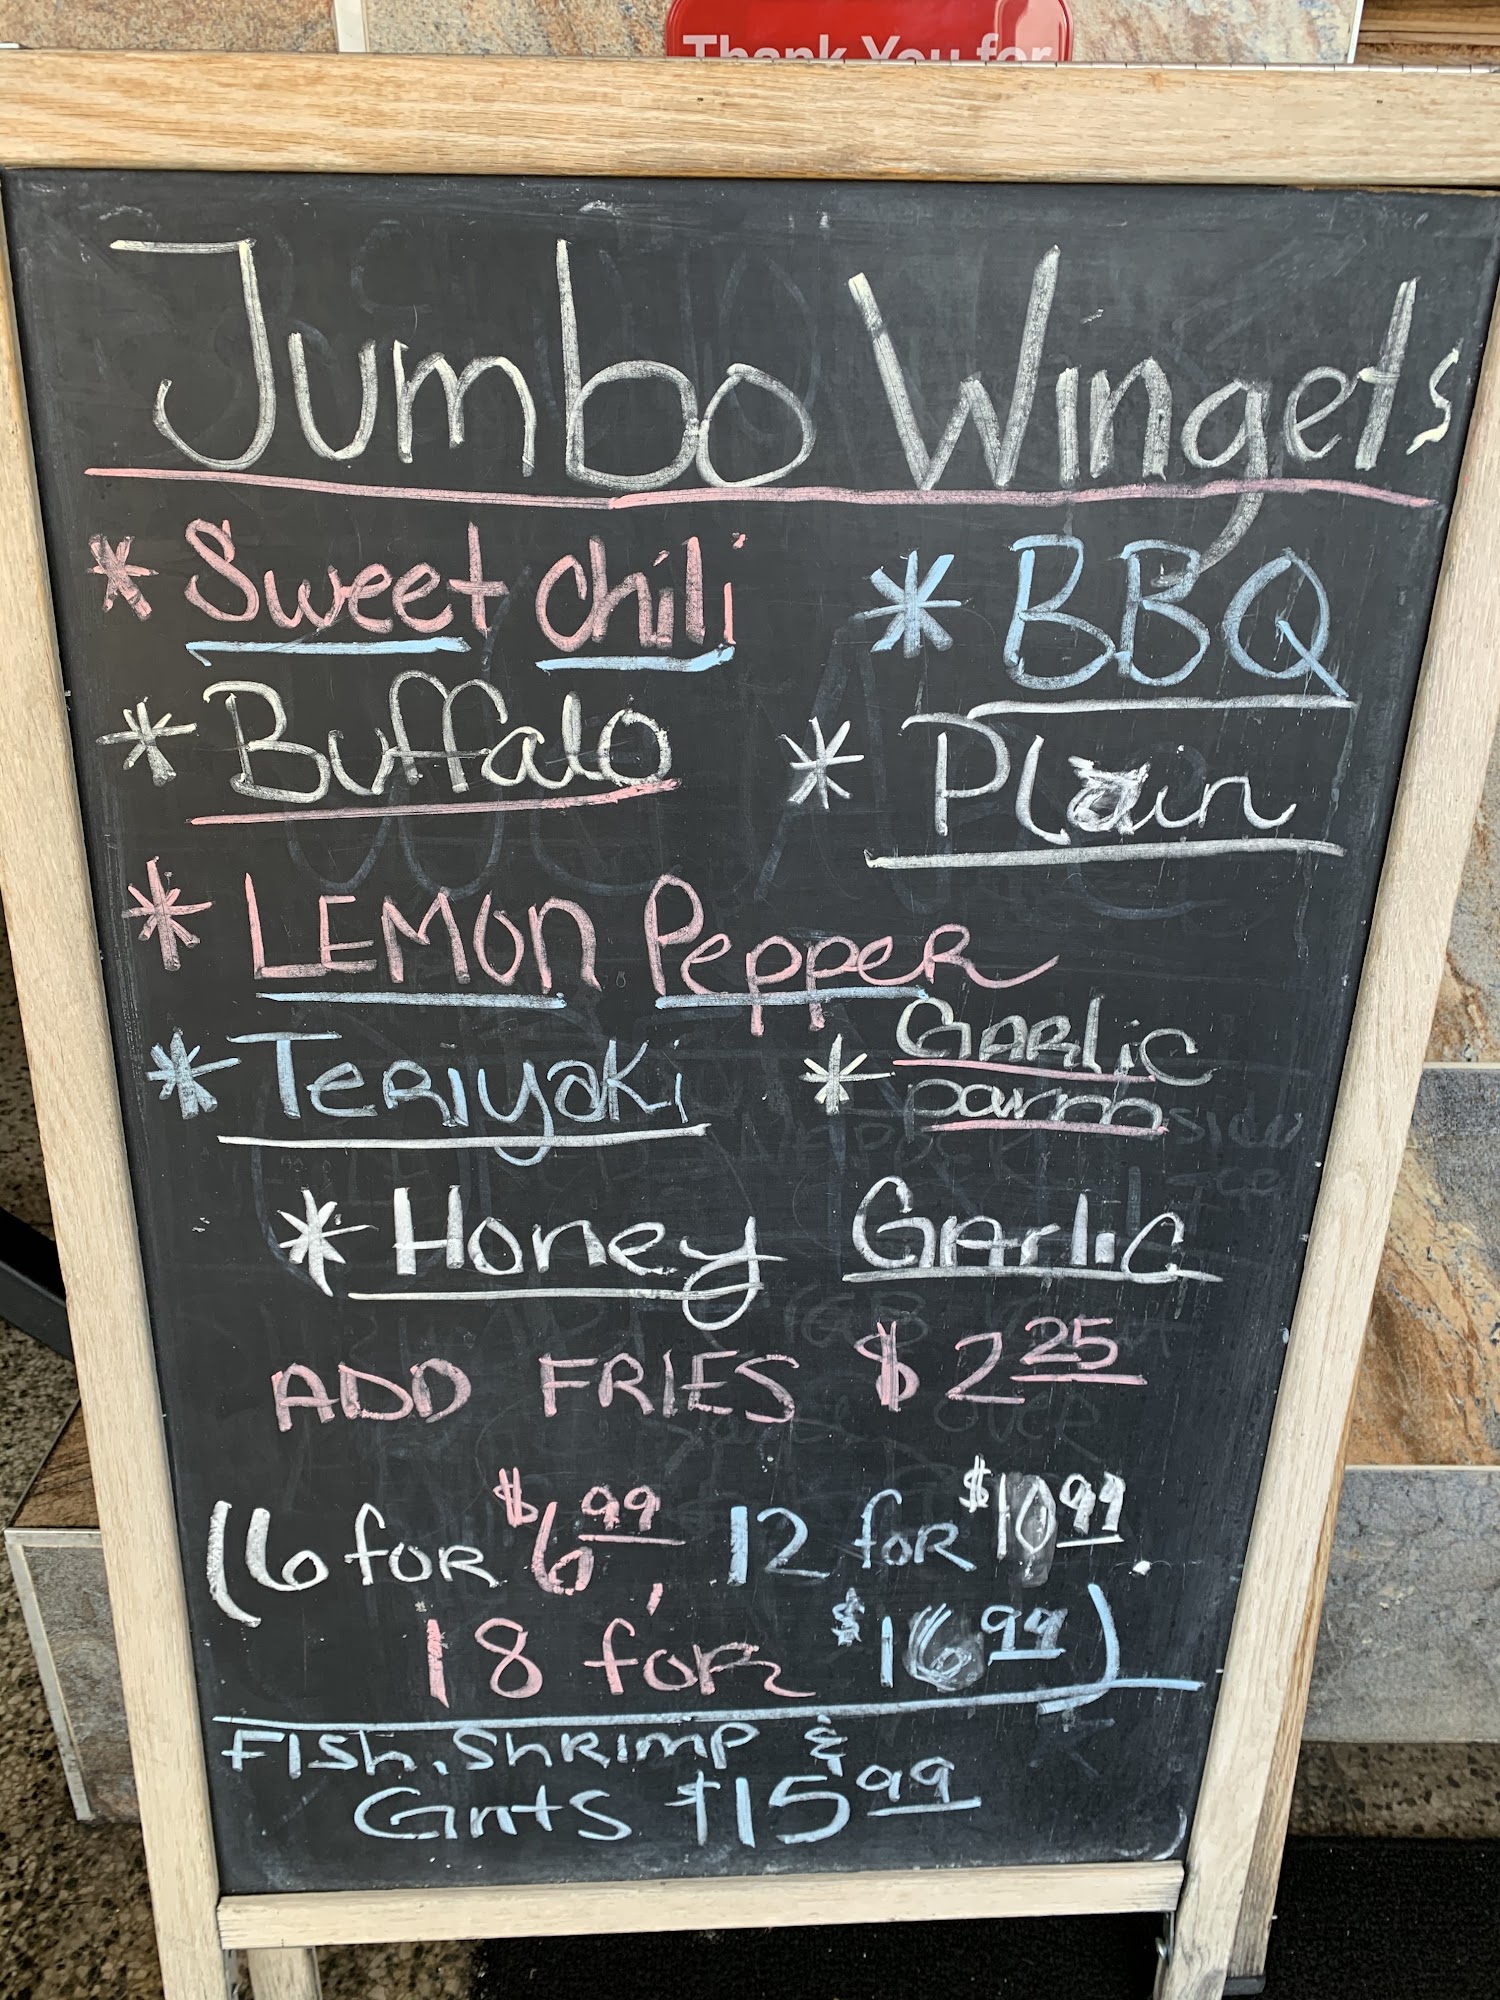 Thank You for
Jumbo Wingets
* Sweet chili * BBQ
* Buffalo * Plain
* LEMON Pepper
* TERIYAKi * GARLiC
parm
* Honey GArliC
ADD FRIES $2.25
(6 for $6.99, 12 for $10.99.
18 for $16.99)
FISh, ShRIMP &
GritS $15.99